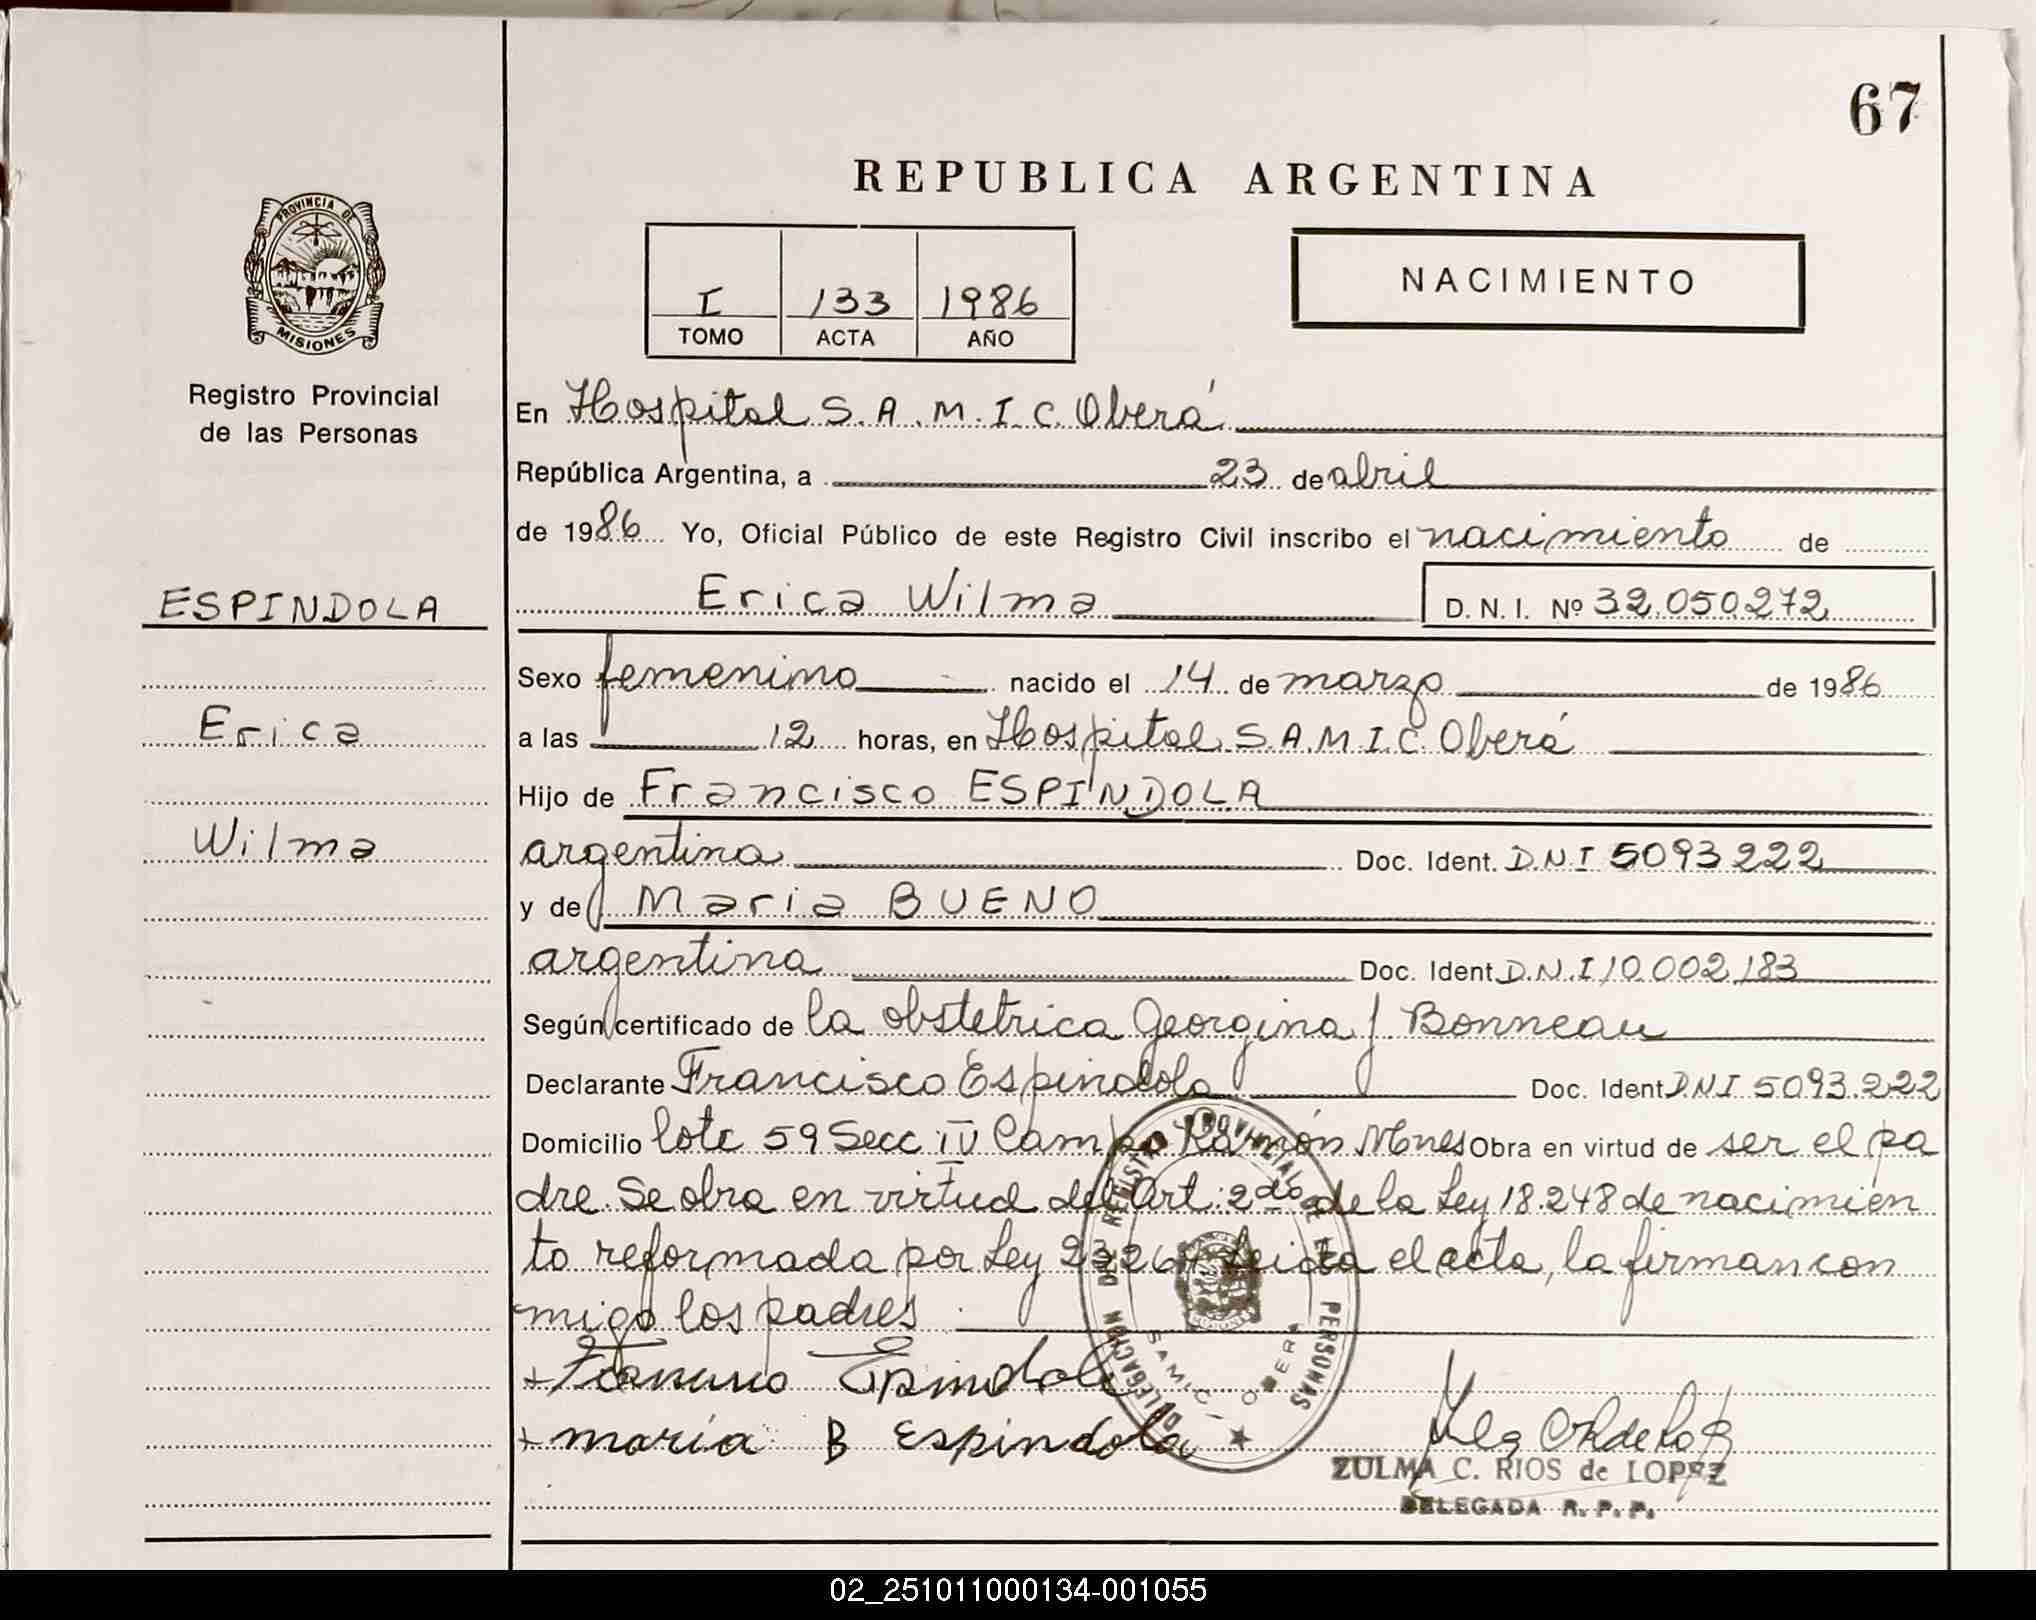 67
REPUBLICA ARGENTINA
PROVINCIA DE
MISIONES
Registro Provincial
de las Personas
I 133 1986
TOMO ACTA AÑO
NACIMIENTO
En Hospital S.A.M.I.C. Oberá
República Argentina, a 23 de abril
de 1986 Yo, Oficial Público de este Registro Civil inscribo el nacimiento de
ESPINDOLA
Erica
Wilma
Erica Wilma D.N.I. Nº 32.050.272
Sexo femenino nacido el 14 de marzo de 1986
a las 12 horas, en Hospital S.A.M.I.C. Oberá
Hijo de Francisco ESPINDOLA
argentina Doc. Ident. D.N.I 5093222
y de Maria BUENO
argentina Doc. Ident. D.N.I 10.002.183
Según certificado de la obstetrica Georgina J. Bonneau
Declarante Francisco Espindola Doc. Ident. DNI 5093.222
Domicilio lote 59 Secc IV Campo Ramón Mnes Obra en virtud de ser el pa
dre. Se obra en virtud del Art. 2do de la Ley 18.248 de nacimien
to reformada por Ley 23264 Leida el acta, la firman con
migo los padres
DELEGACION DEL REGISTRO PROVINCIAL DE LAS PERSONAS
SAMIC - OBERA
+ Francisco Espindola
+ maría B Espindola
ZULMA C. RIOS de LOPEZ
DELEGADA R. P. P.
02_251011000134-001055